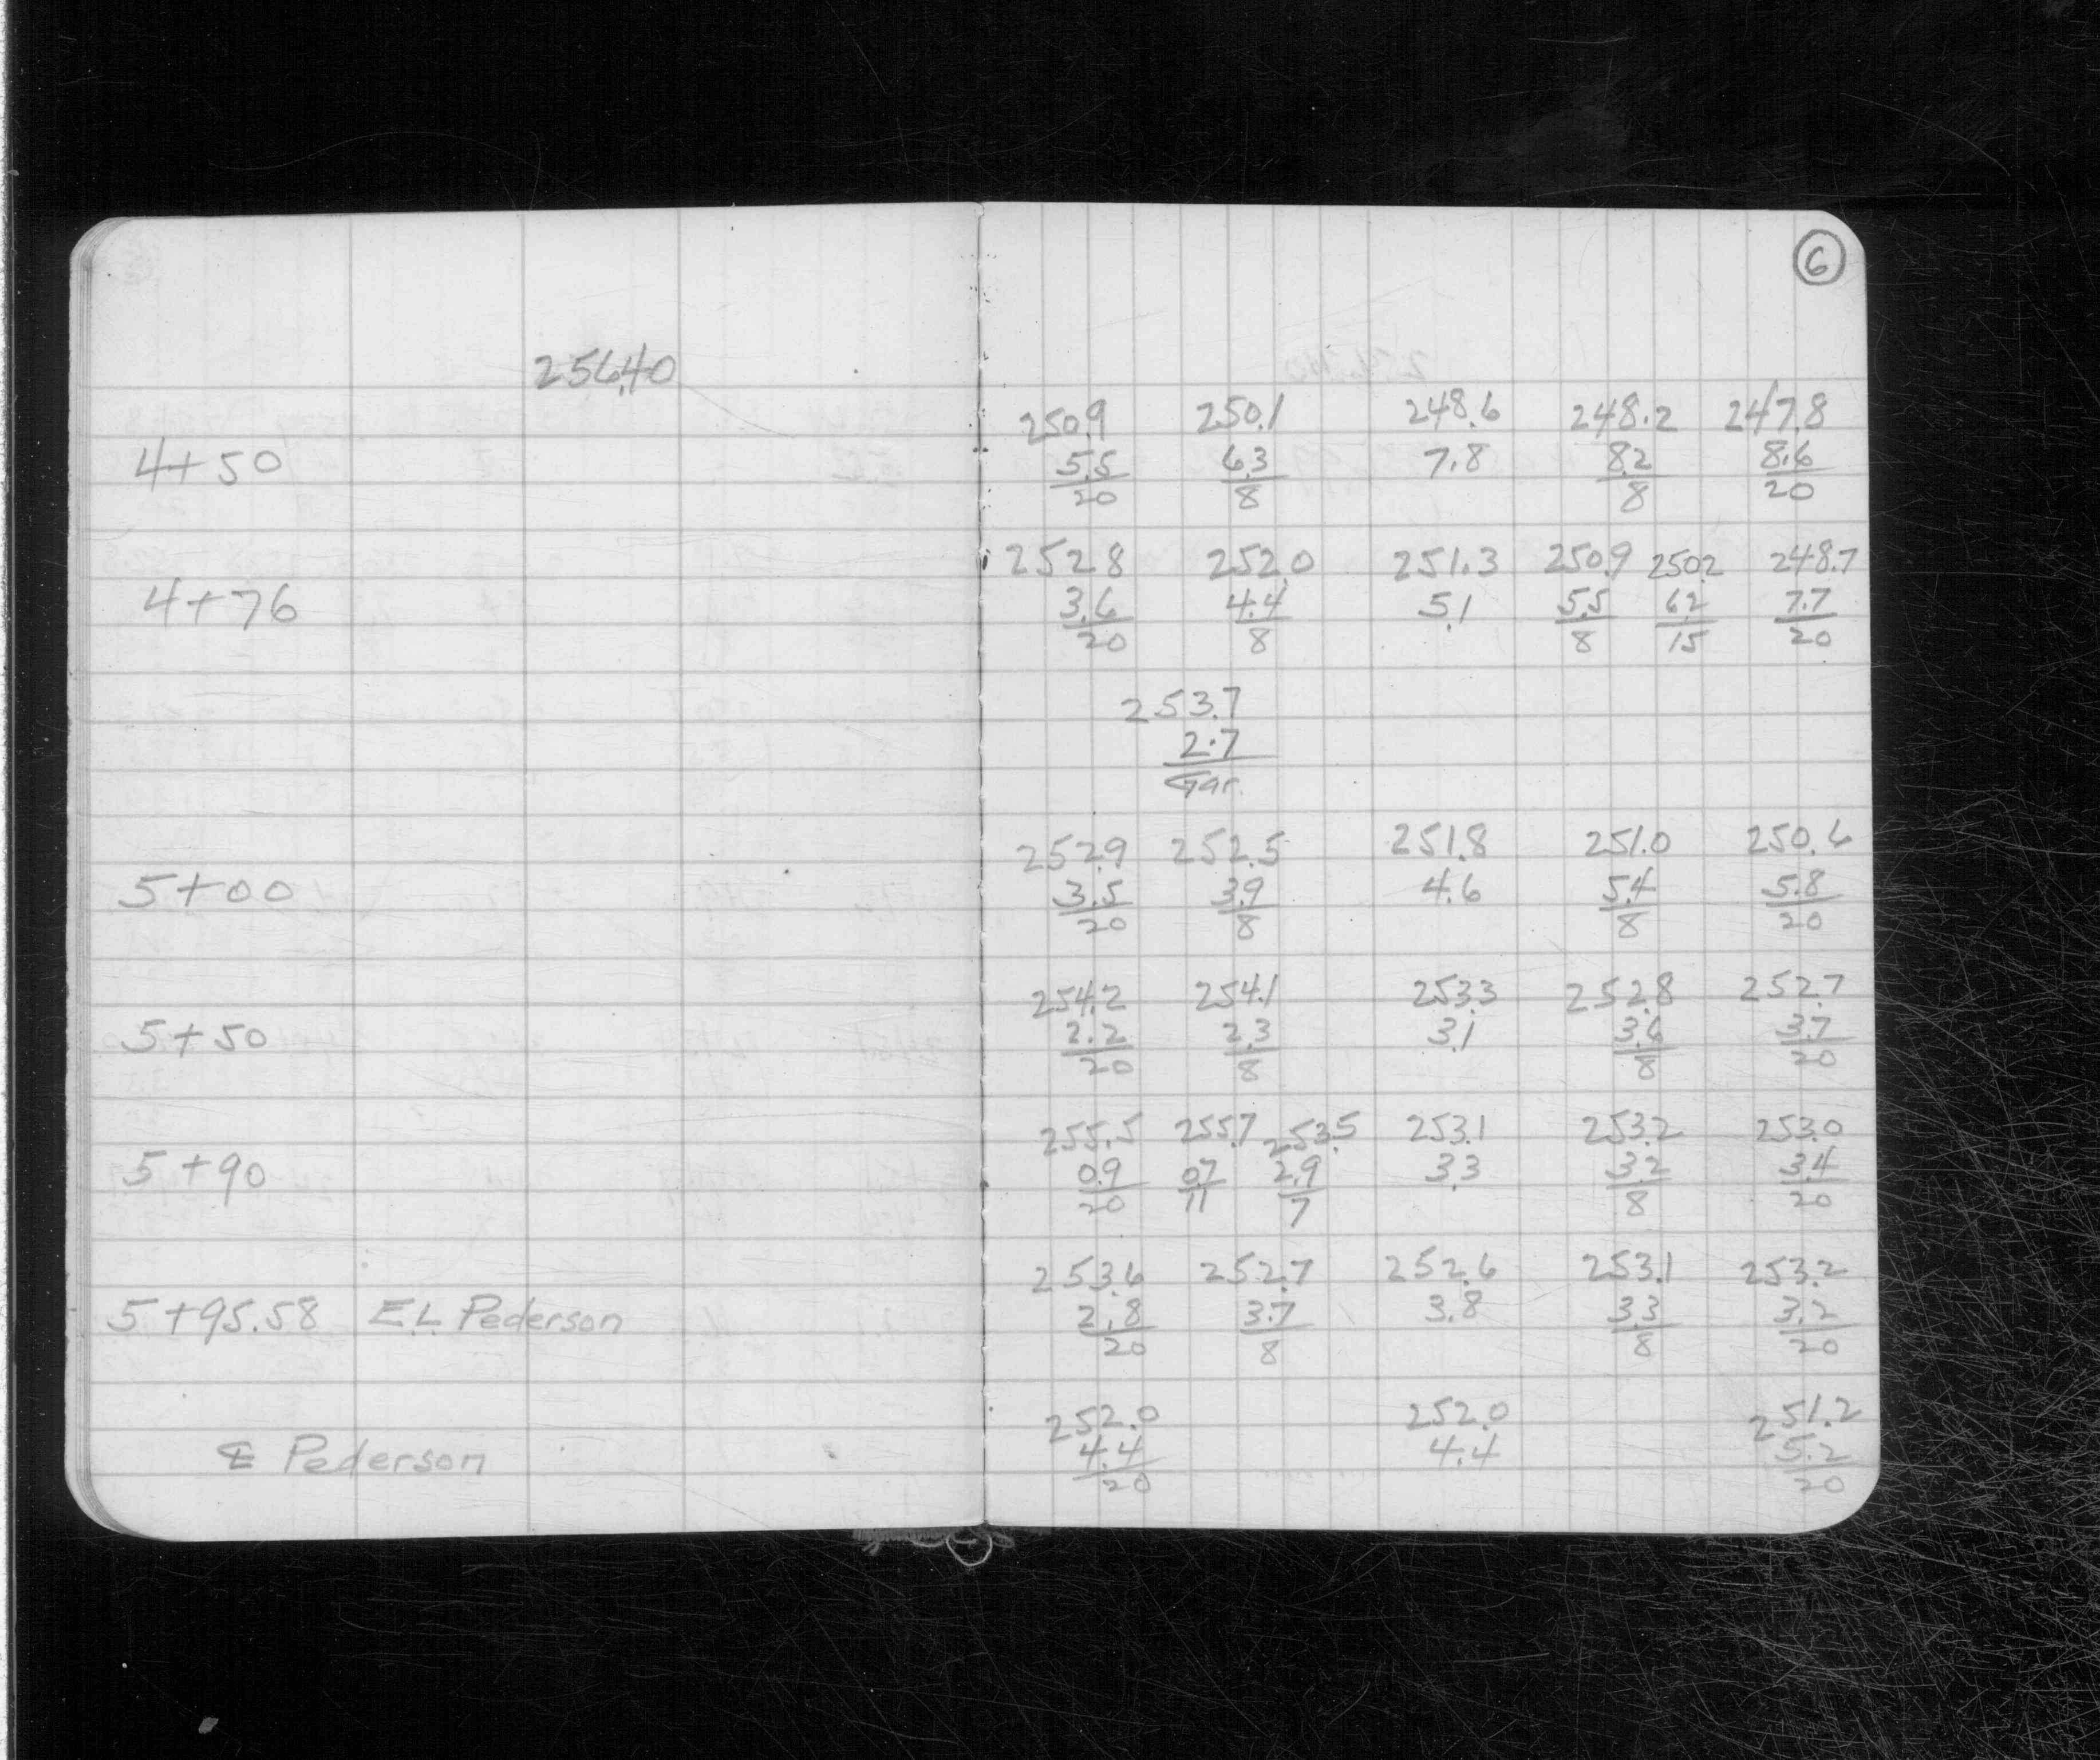 6
256.40
250.9 250.1 248.6 248.2 247.8
4+50 5.5 6.3 7.8 8.2 8.6
20 8 8 20
252.8 252.0 251.3 250.9 250.2 248.7
4+76 3.6 4.4 5.1 5.5 6.2 7.7
20 8 8 15 20
253.7
2.7
Gar.
252.9 252.5 251.8 251.0 250.6
5+00 3.5 3.9 4.6 5.4 5.8
20 8 8 20
254.2 254.1 253.3 252.8 252.7
5+50 2.2 2.3 3.1 3.6 3.7
20 8 8 20
255.5 255.7 253.5 253.1 253.2 253.0
5+90 0.9 0.7 2.9 3.3 3.2 3.4
20 11 7 8 20
253.6 252.7 252.6 253.1 253.2
5+95.58 E.L. Pederson 2.8 3.7 3.8 3.3 3.2
20 8 8 20
252.0 252.0 251.2
℄ Pederson 4.4 4.4 5.2
20 20